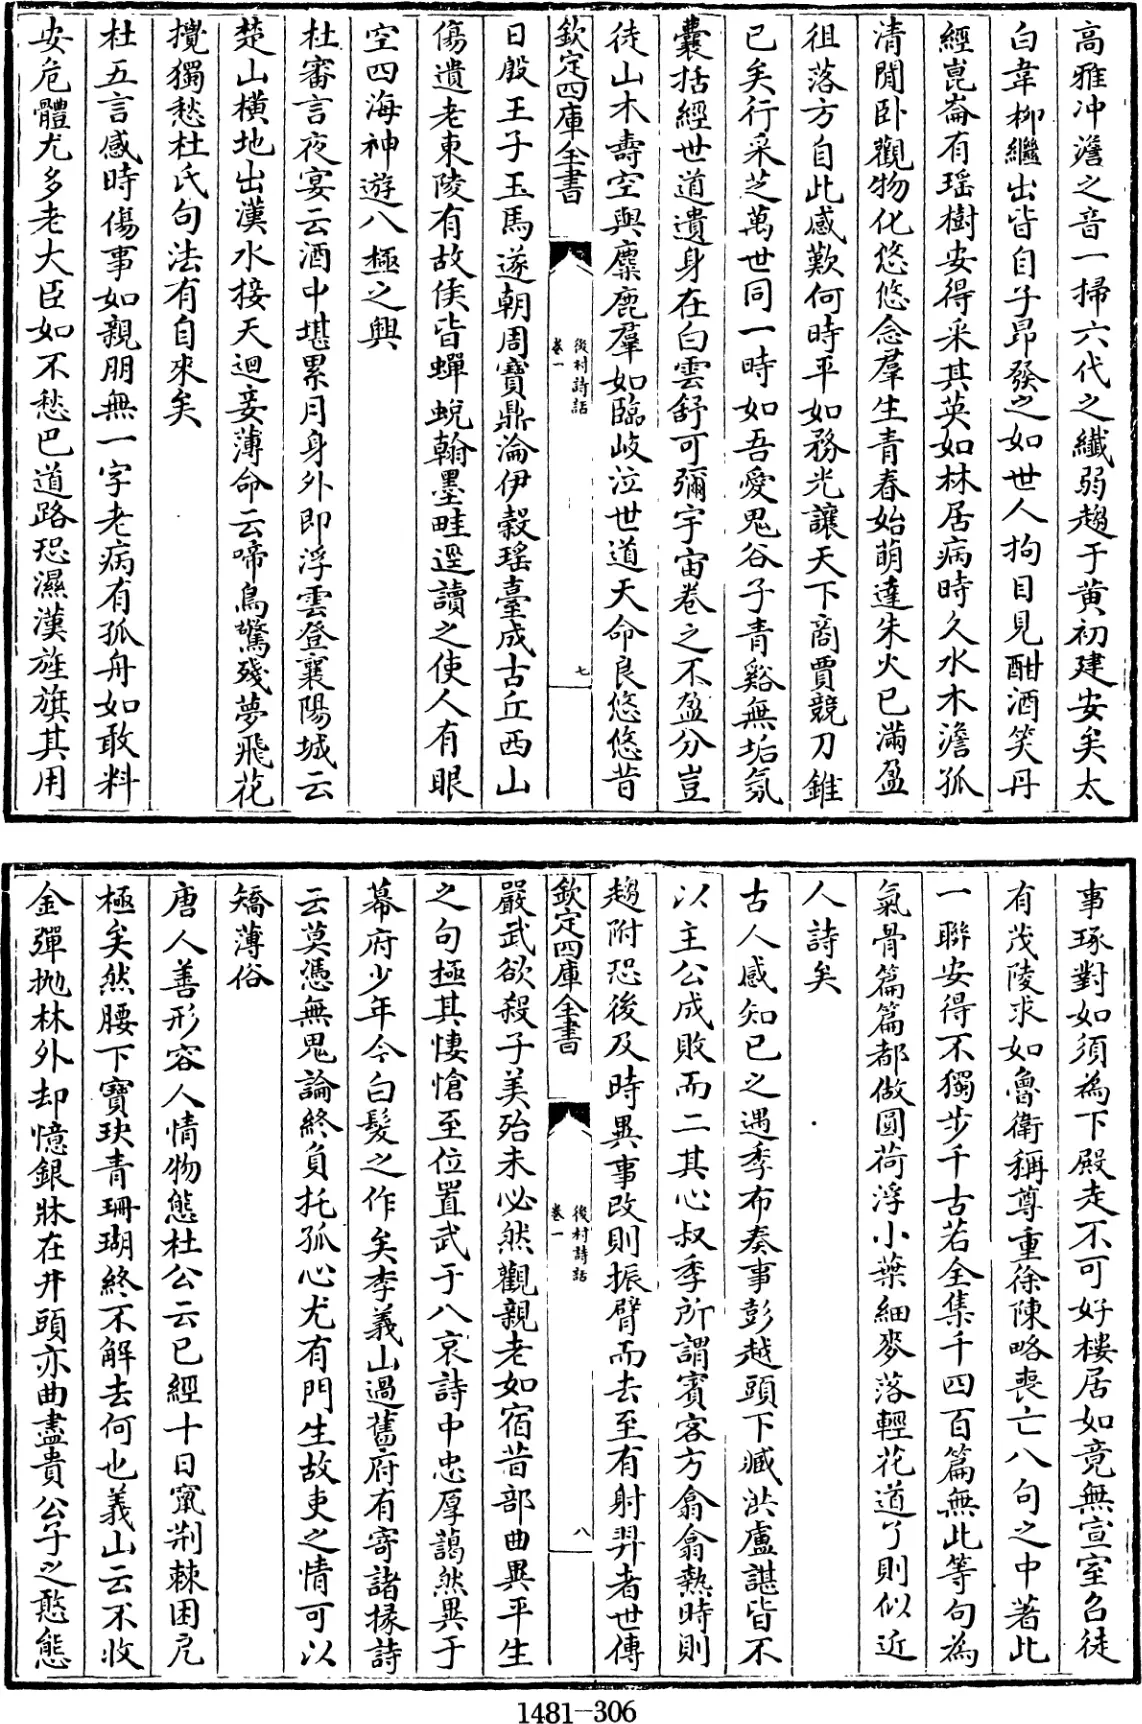 高雅冲澹之音一掃六代之纖弱趨于黄初建安矣太
白韋栁繼出皆自子昻發之如世人拘目見酣酒笑丹
經崑崙有瑶樹安得采其英如林居病時久水木澹孤
清閒卧觀物化悠悠念羣生青春始萌達朱火已滿盈
徂落方自此感歎何時平如務光讓天下商賈競刀錐
已矣行采芝萬世同一時如吾愛鬼谷子青谿無垢氛
囊括經世道遺身在白雲舒可彌宇宙卷之不盈分豈
徒山木壽空與麋鹿羣如臨岐泣世道天命良悠悠昔
欽定四庫全書
後村詩話
卷一
七
日殷王子玉馬遂朝周寶鼎淪伊穀瑤臺成古丘西山
傷遺老東陵有故侯皆蟬蛻翰墨畦逕讀之使人有眼
空四海神遊八極之興
杜審言夜宴云酒中堪累月身外即浮雲登襄陽城云
楚山横地出漢水接天迴妾薄命云啼鳥驚殘夢飛花
攪獨愁杜氏句法有自來矣
杜五言感時傷事如親朋無一字老病有孤舟如敢料
安危體尤多老大臣如不愁巴道路恐濕漢旌旗其用
事琢對如須為下殿走不可好樓居如竟無宣室召徒
有茂陵求如魯衛稱尊重徐陳略喪亡八句之中著此
一聯安得不獨步千古若全集千四百篇無此等句為
氣骨篇篇都做圓荷浮小葉細麥落輕花道了則似近
人詩矣
古人感知己之遇季布奏事彭越頭下臧洪盧諶皆不
以主公成敗而二其心叔季所謂賓客方翕翕熱時則
趨附恐後及時異事改則振臂而去至有射羿者世傳
欽定四庫全書
後村詩話
卷一
八
嚴武欲殺子美殆未必然觀親老如宿昔部曲異平生
之句極其悽愴至位置武于八哀詩中忠厚藹然異于
幕府少年今白髮之作矣李義山過舊府有寄諸掾詩
云莫憑無鬼論終負托孤心尤有門生故吏之情可以
矯薄俗
唐人善形容人情物態杜公云已經十日竄荆棘困戹
極矣然腰下寶玦青珊瑚終不解去何也義山云不收
金彈抛林外却憶銀牀在井頭亦曲盡貴公子之憨態
1481-306